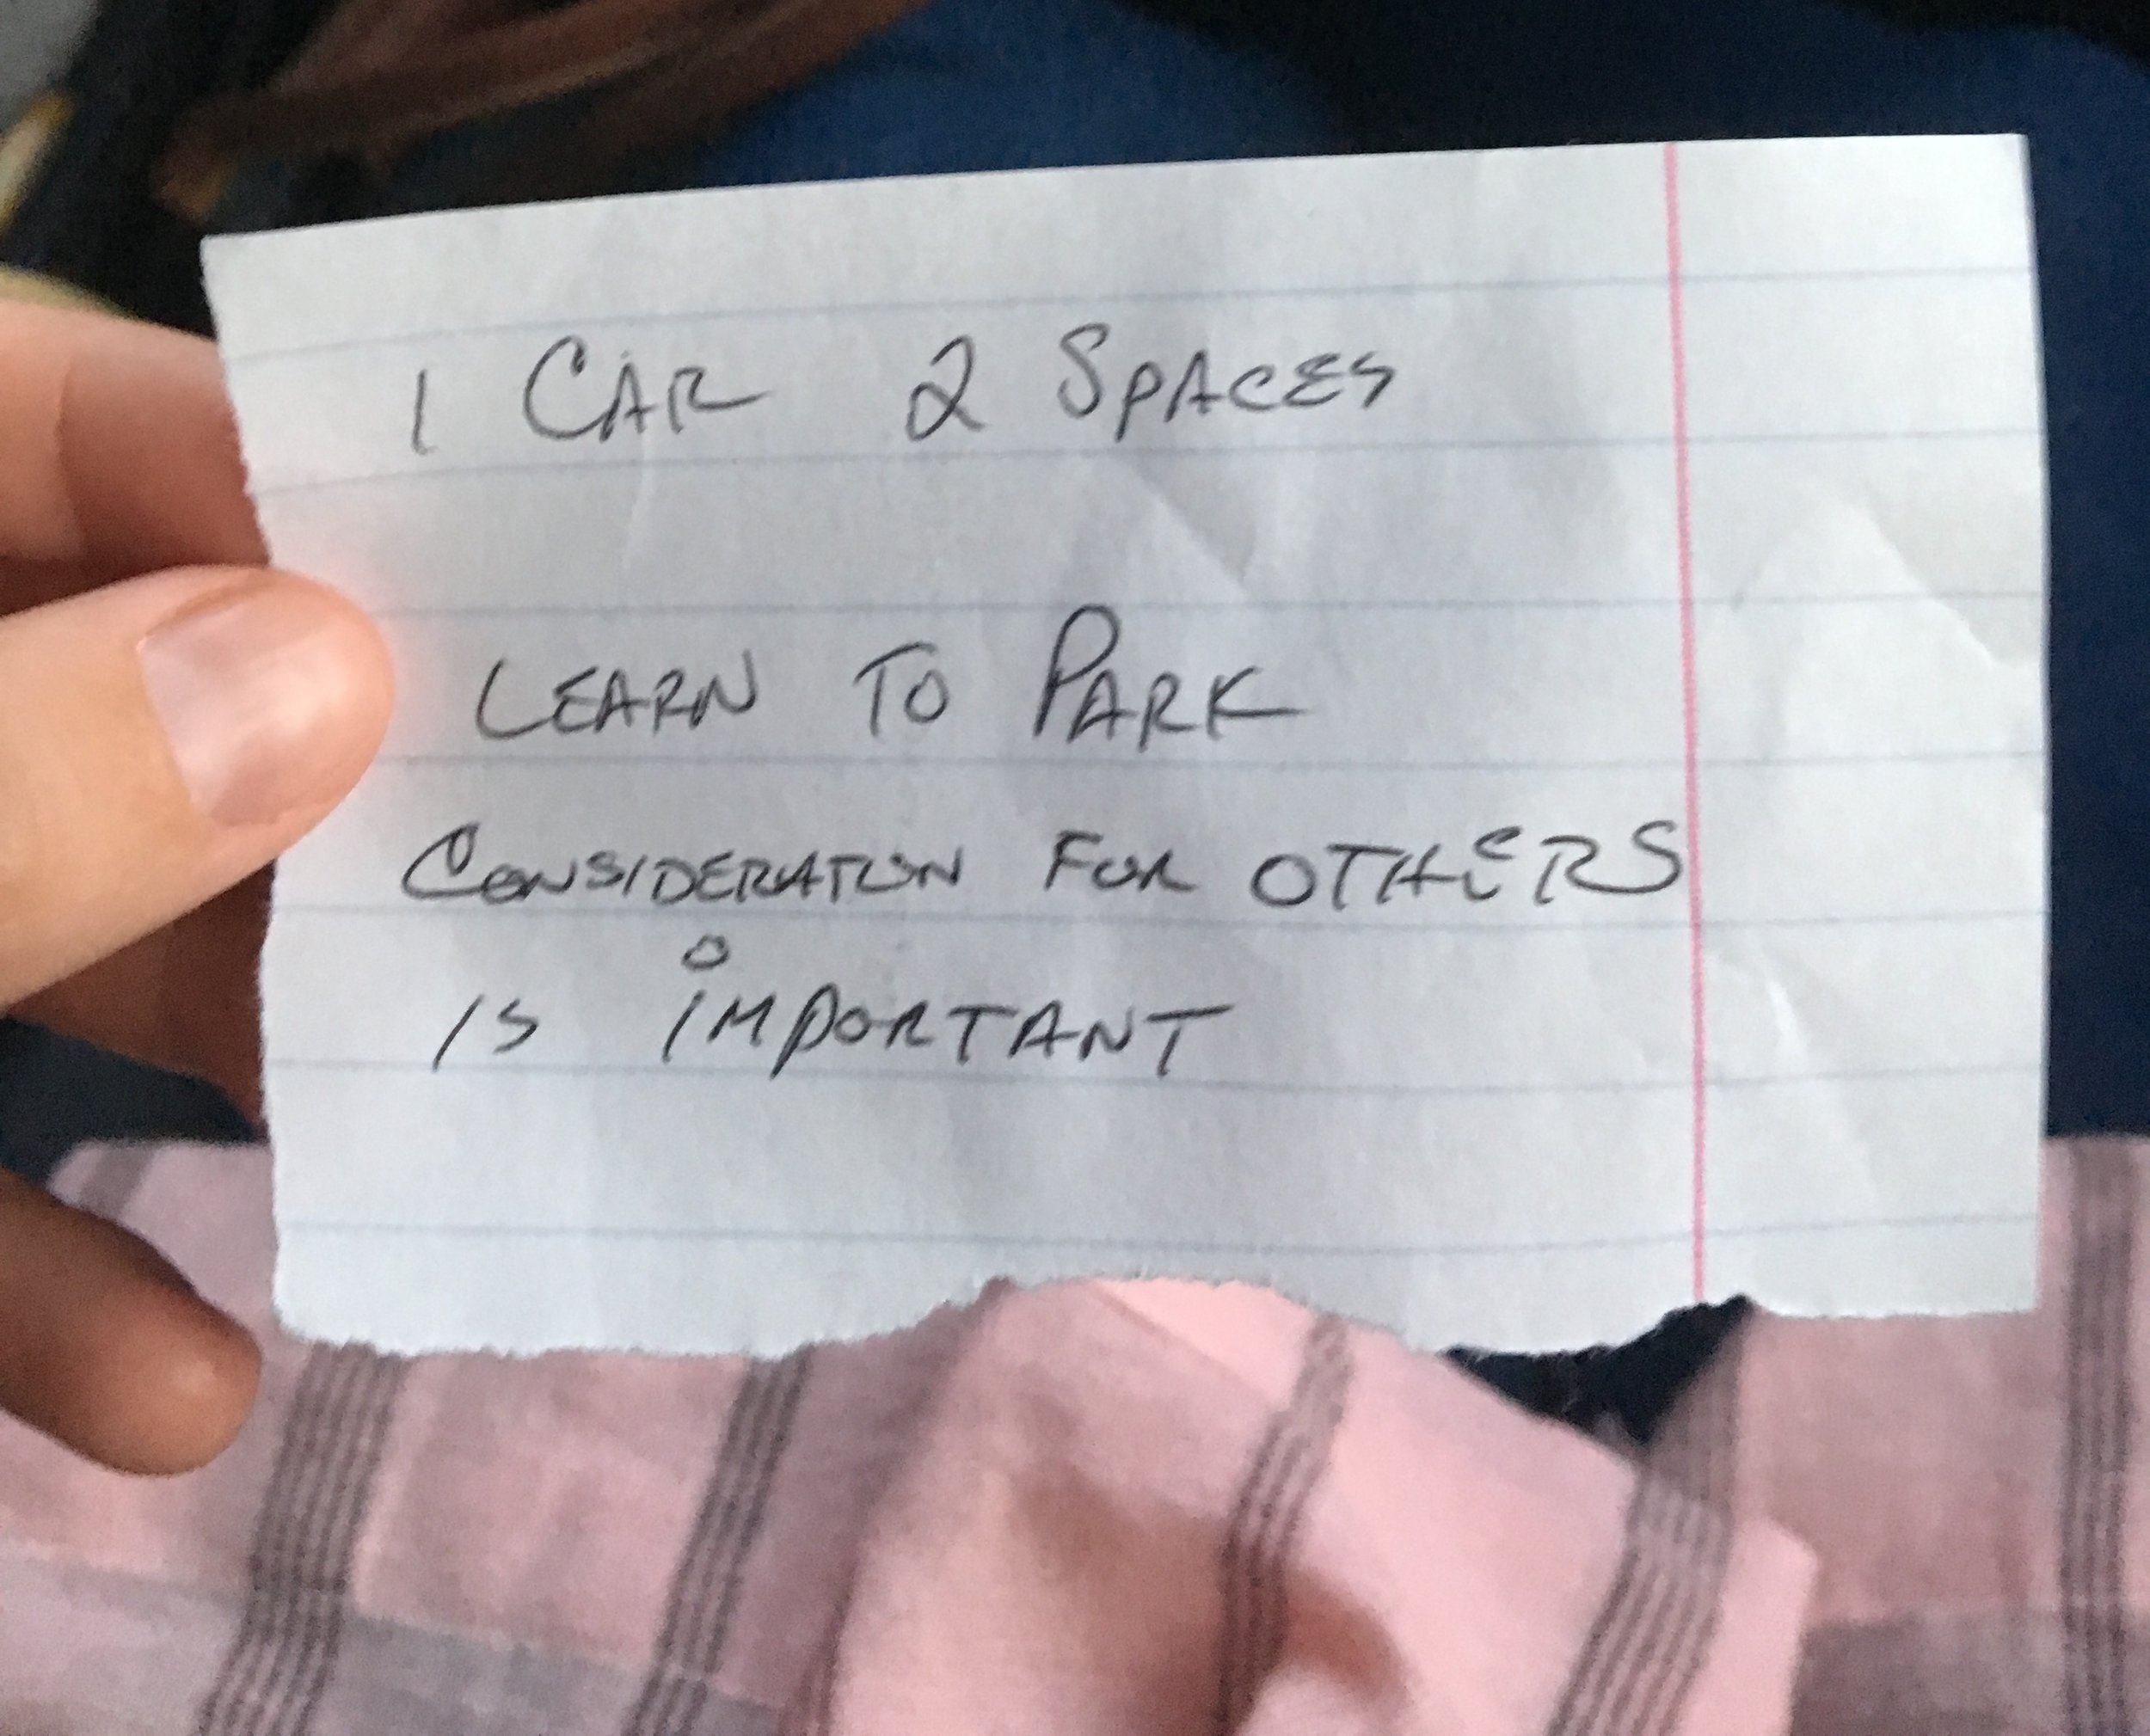 1 CAR 2 SPACES
LEARN TO PARK
CONSIDERATION FOR OTHERS
IS iMPORTANT